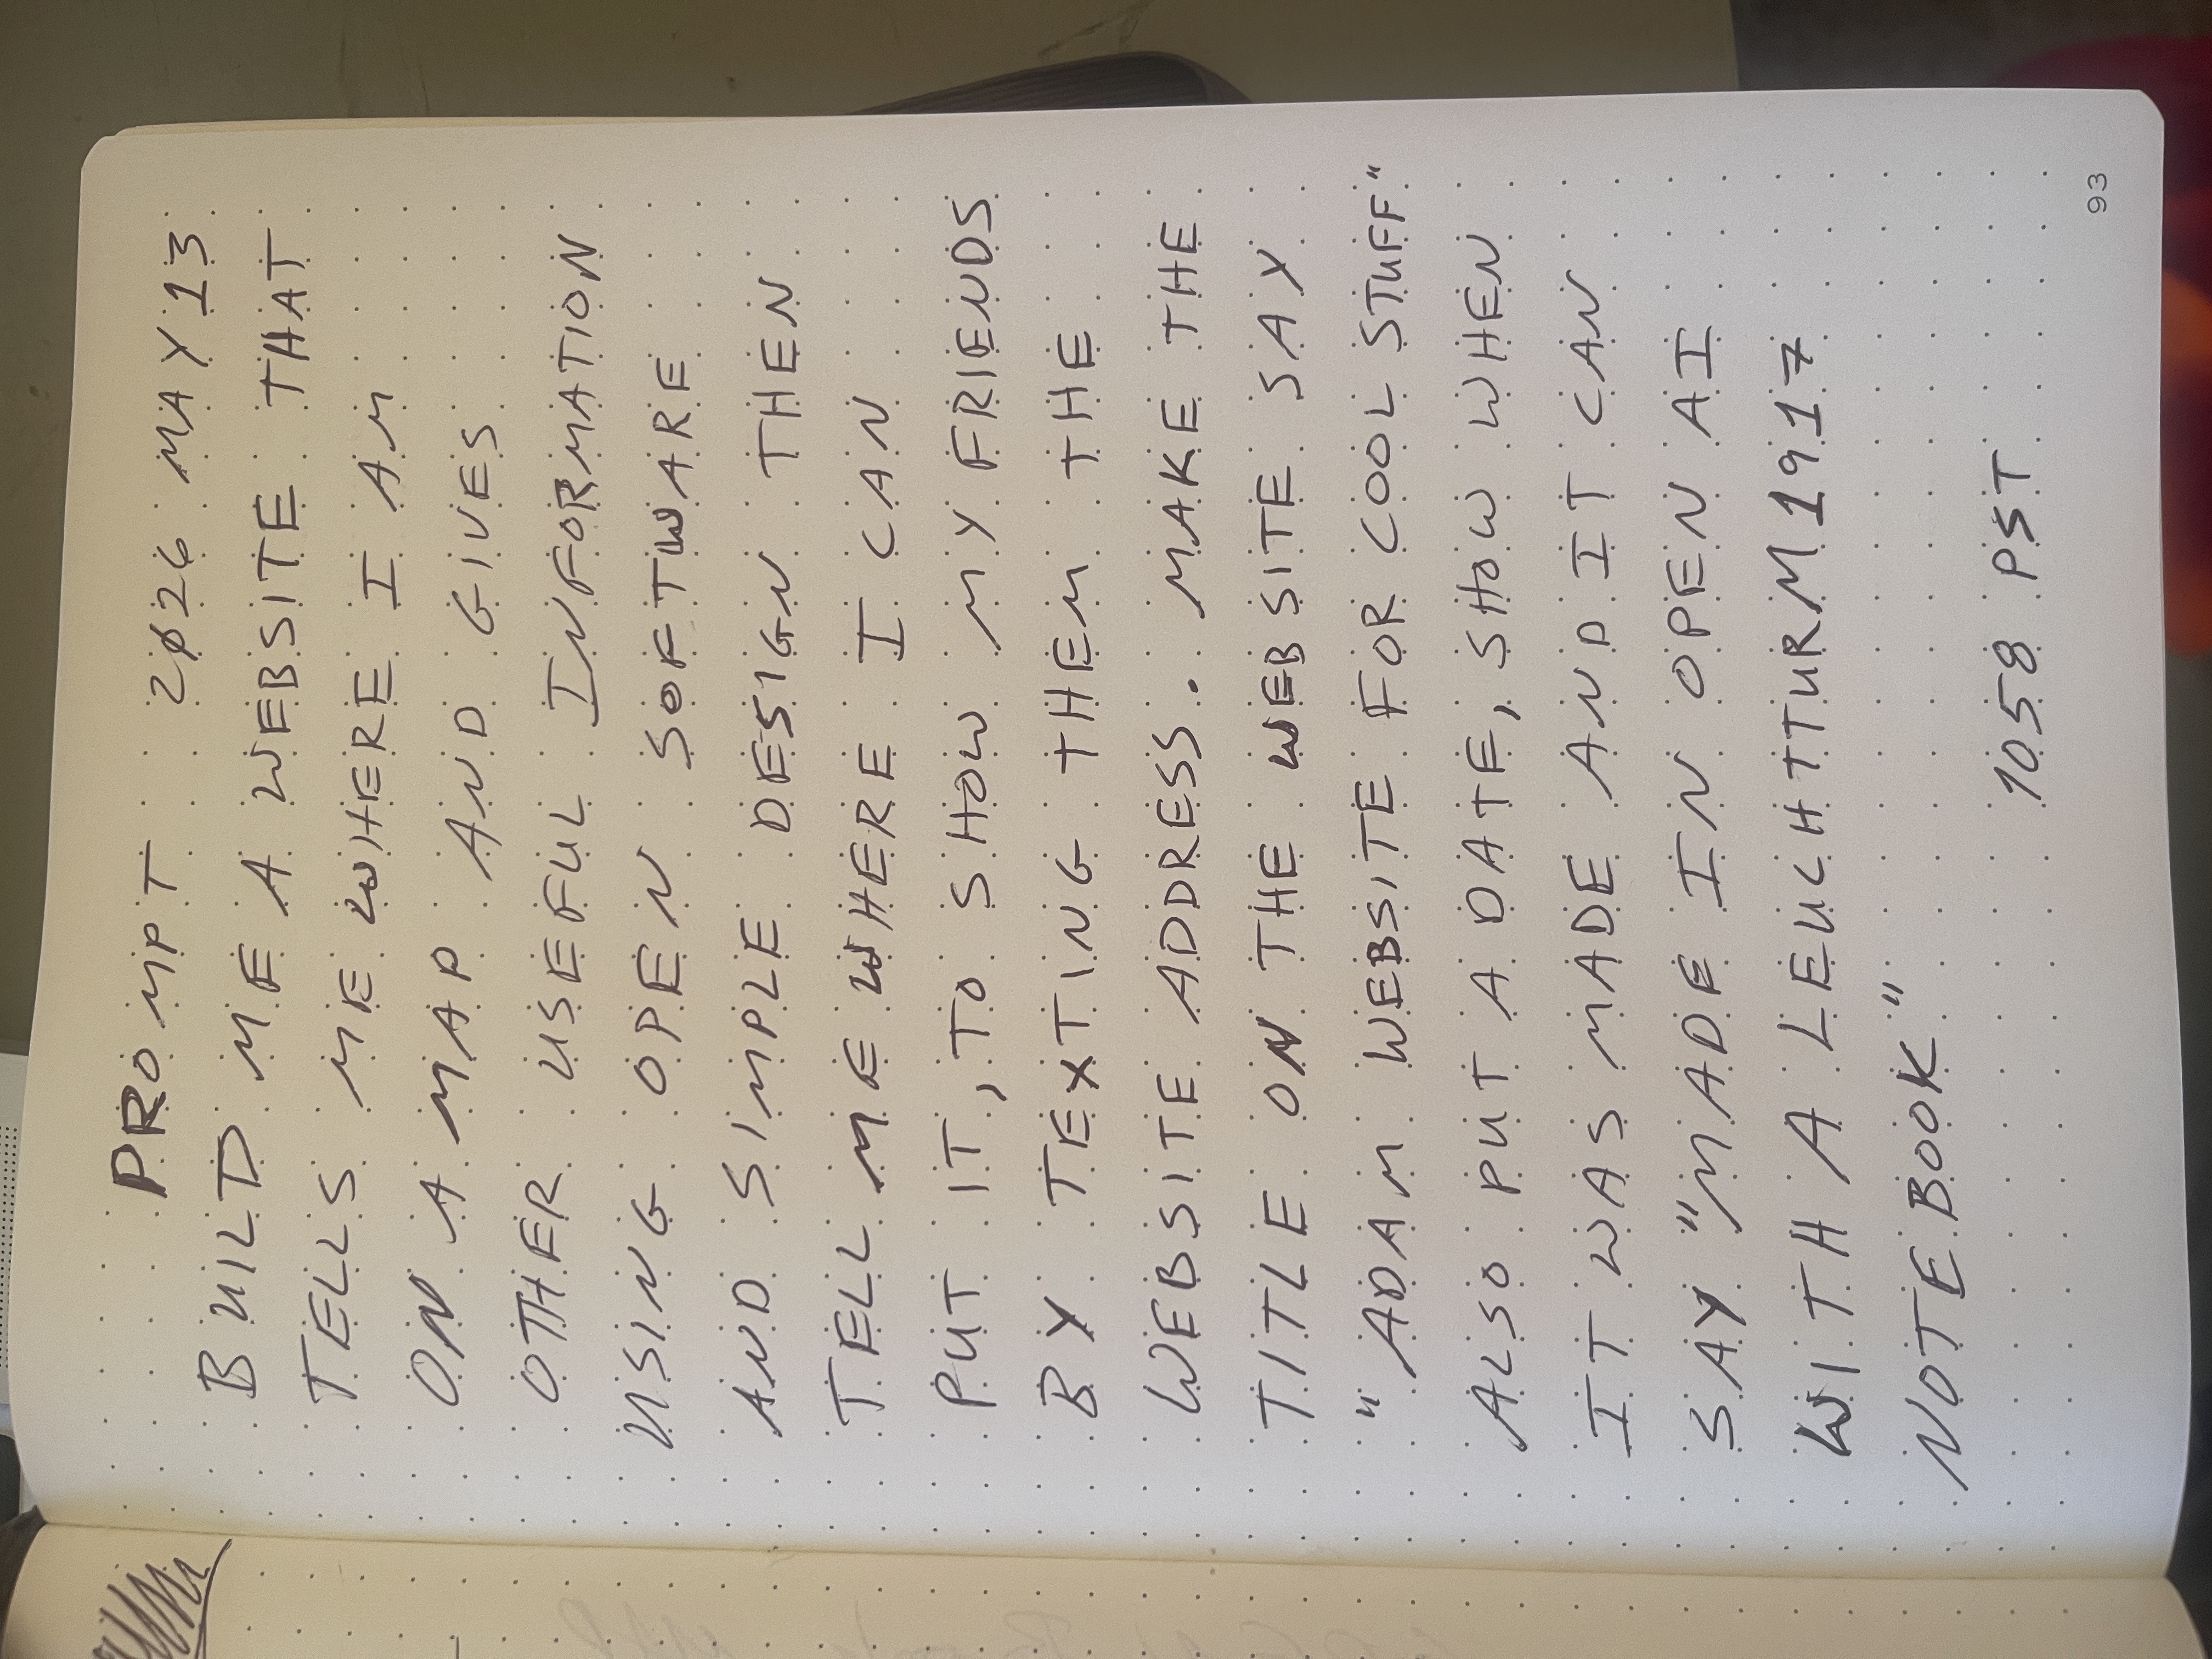 PROMPT 2026 MAY 13
BUILD ME A WEBSITE THAT
TELLS ME WHERE I AM
ON A MAP AND GIVES
OTHER USEFUL INFORMATION
USING OPEN SOFTWARE
AND SIMPLE DESIGN THEN
TELL ME WHERE I CAN
PUT IT, TO SHOW MY FRIENDS
BY TEXTING THEM THE
WEBSITE ADDRESS. MAKE THE
TITLE ON THE WEBSITE SAY
"ADAM WEBSITE FOR COOL STUFF"
ALSO PUT A DATE, SHOW WHEN
IT WAS MADE AND IT CAN
SAY "MADE IN OPEN AI
WITH A LEUCHTTURM1917
NOTEBOOK"
1058 PST
93